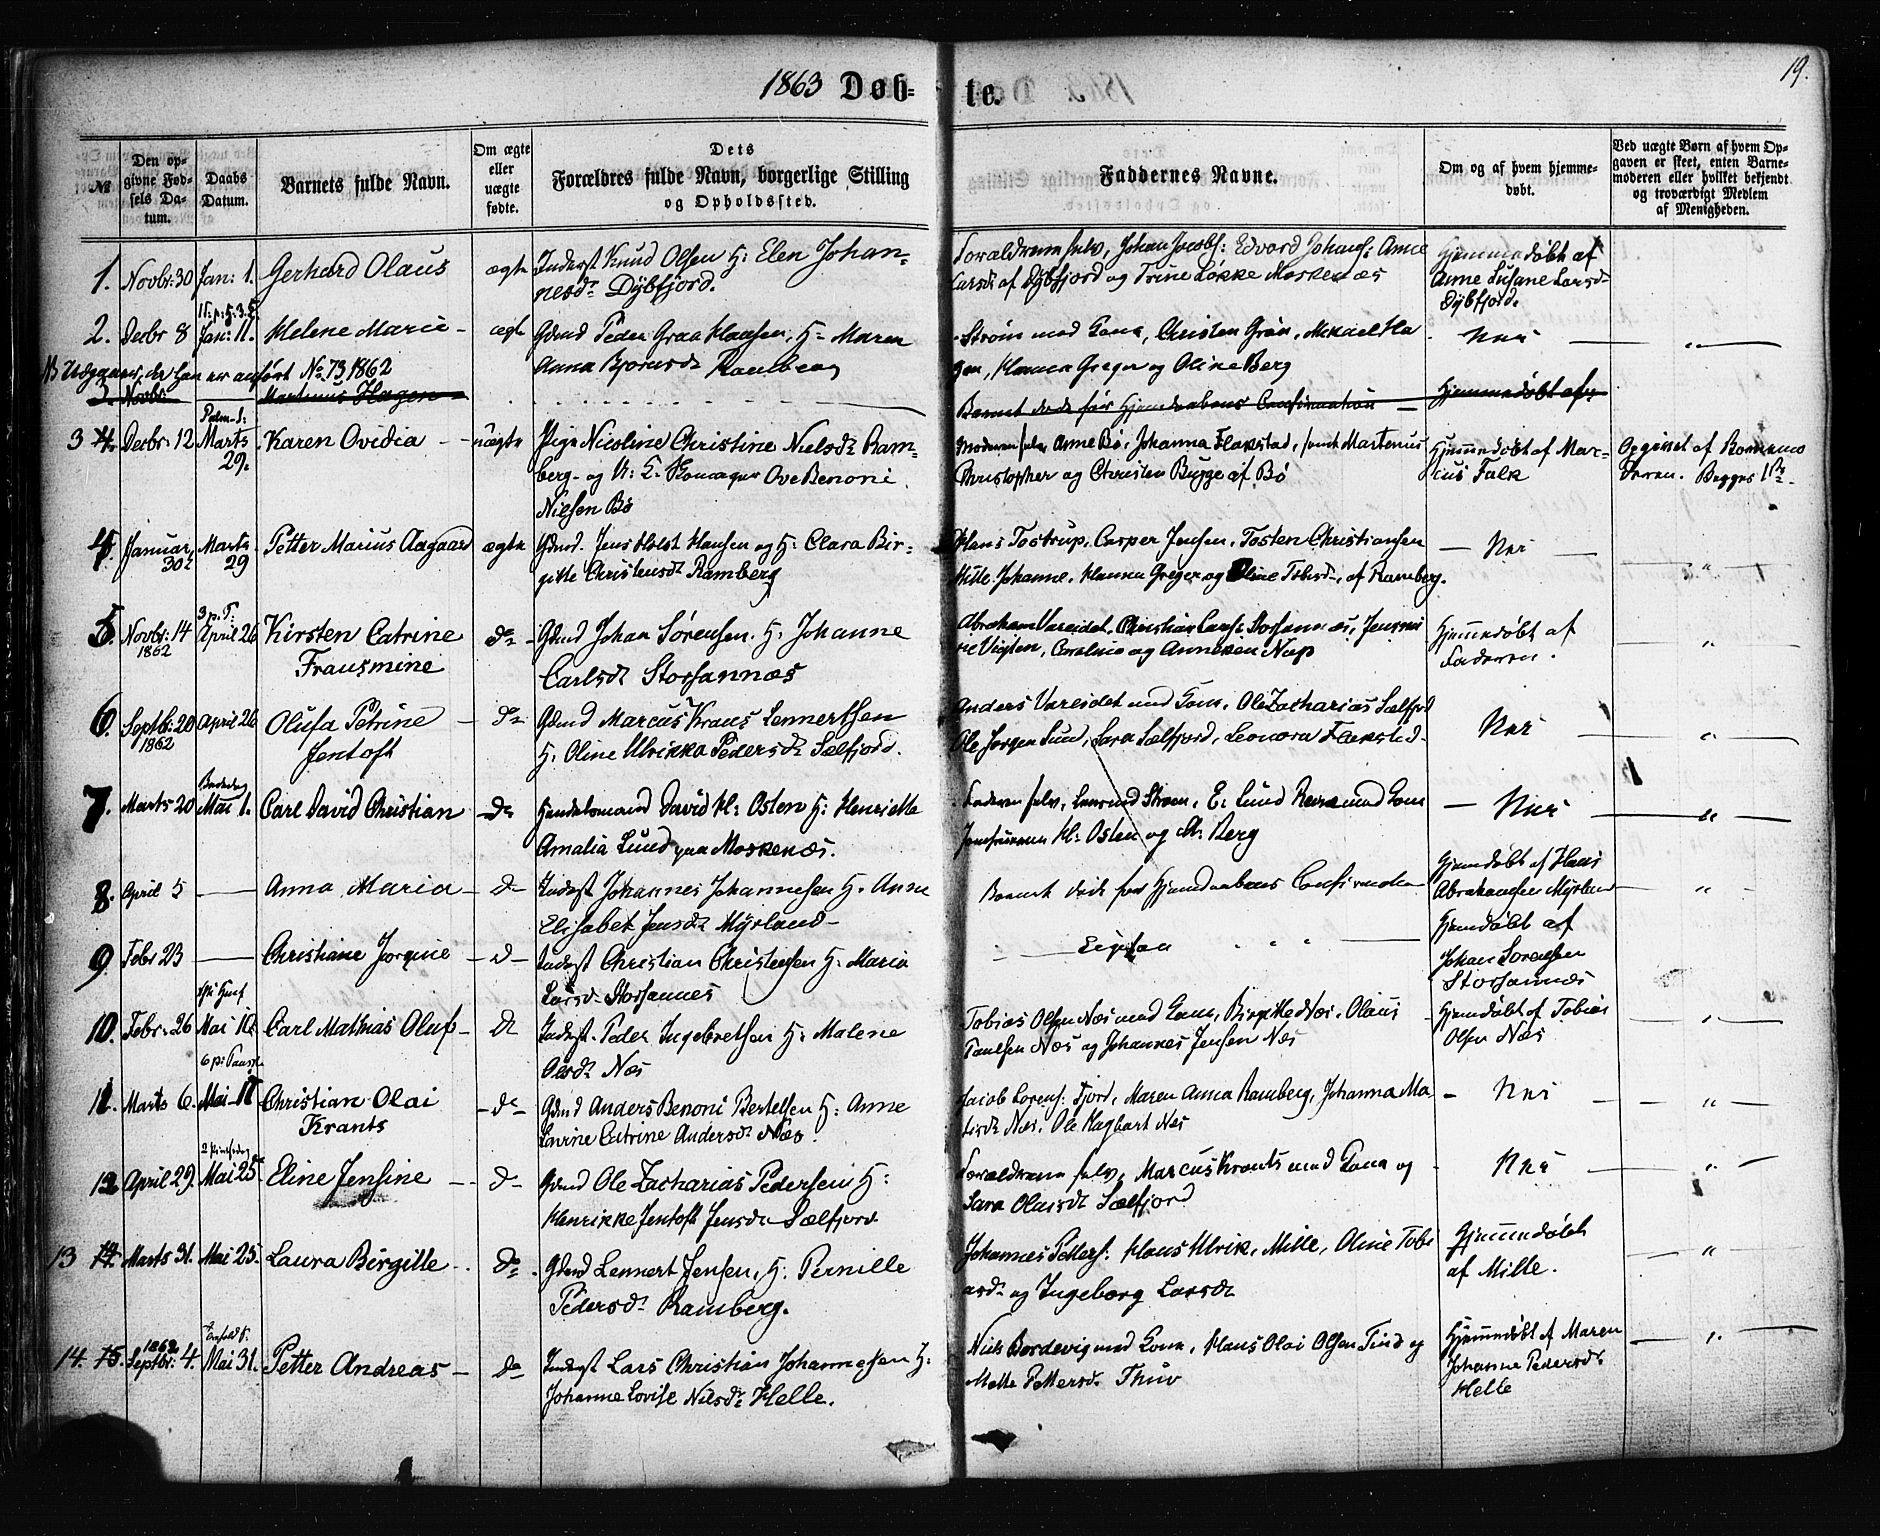 1863 Døb- te. 19.
№
Den op-
givne Fød-
sels Da-
tum.
Daabs
Datum.
Barnets fulde Navn.
Om ægte
eller
uægte
fødte.
Dets
Forældres fulde Navn, borgerlige Stilling
og Opholdssted.
Faddernes Navne.
Om og af hvem hjemme-
døbt.
Ved uægte Børn af hvem Op-
gaven er skeet, enten Barne-
moderen eller hvilket bekjendt
og troværdigt Medlem
af Menigheden.
1. Novbr: 30 Jan: 1. Gerhard Olaus ægte Inderst Knud Olsen H: Elen Johan-
nesd: Dybfjord.
Forældrene selv, Johan Jacobs: Edvard Johans: Anne
Larsd: af Dybfjord og Trine Løkke Moskenæs
Hjemmedøbt af
Anne Susane Larsd:
Dybfjord.
2. Decbr 8 Jan: 11. Helene Marie - ægte Gdmd Peder Graa Hansen, H: Maren
Anna Bjornsd: Ramberg
Strøm med Kona, Christen Grøn, Mikael Ha
gen, Hanna Greger og Oline Berg
- Nei - "
NB Udgaaer, da han er anført No. 73 1862
3. Novbr: Martinus Hagen
Barnet døde før Hjemdaabens Confirmation - Hjemmedøbt af
3 4. Decbr 12 Palm-S. Marts 29. Karen Ovidia - uægte Pige Nicoline Christine Nielsd: Ram-
berg - og U: K: Ove Benoni
Nielsen Bø
Moderen selv Anne Bø, Johanna Flakstad, samt Martinus
Christopher og Christen Bugge af Bø
Hjemmedøbt af Mar-
cius Falk
Opgivet af Barnemo
deren. Begges 1ste
4. Januar 30: Marts 29 Petter Marius Aagaard ægte Gdmd. Jens Holst Hansen og H: Clara Bir-
gitte Christensd: Ramberg
Hans Tostrup, Casper Jensen, Tosten Christiansen
Mille Johanne, Hanna Greger og Oline Tobisd:, af Ramberg.
- Nei - "
5. Novbr: 14 1862 3 p. P: April 26 Kirsten Catrine
Fransmine
do - Gdmd Johan Sørensen. H: Johanne
Carlsd: Storsannæs
Abraham Vareidet, Christian Cars: Storsannæs, Jensmi
ne Vigten, Caroline og Anneken Nap
Hjemmedøbt af
Faderen. "
6. Septbr: 20 1862 April 26 Olufa Petrine
Jentoft
- do Gdmd Marcus Krans Lennertsen
H: Oline Ulrikka Pedersd: Sælfjord.
Anders Vareidet med Kona, Ole Zacharias Sælfjord
Ole Jørgen Sund, Sara Sælfjord, Leonora Flakstad.
Nei "
7. Marts 20 Bededag Mai 1. Carl David Christian - do Handelsmand David Kl: Osten H: Henriette
Amalia Lund paa Moskenæs.
Faderen selv, Strøm, E: Lund Reine med Kona
Jomfruerne Kl: Osten og A: Berg
- Nei - "
8. April 5 - Anna Maria - do Inderst Johannes Johannesen H: Anne
Elisabet Jensd: Myrland -
Barnet døde før Hjemdaabens Confirmation
Hjemdøbt af Hans
Abrahamsen Myrland
- " -
9. Febr 23 - Christiane Jorgine - do - Inderst Christian Christensen H: Maria
Larsd: Storsannes
- Ligesaa -
Hjemdøbt af
Johan Sorensen
Storsannæs
10. Febr: 26 Mai 10 Carl Mathias Oluf - do Inderst. Peder Ingebretsen H: Malene
Olsd: Næs
Tobias Olsen Næs med Kona, Birgitte Næs, Olaus
Paulsen Næs og Johannes Jensen Næs
Hjemdøbt af Tobias
Olsen Næs
11. Marts 6. 6 p: Paaske Mai 17 Christian Olai
Krants
- do - Gdmd Anders Benoni Bertelsen H: Anne
Lovine Catrine Andersd: Næs.
Jacob Lorens: Fjord, Maren Anna Ramberg, Johanna Ma-
tisd: Næs, Ole Hagbart Næs
- Nei - "
12 April 29. 2 Pintsedag Mai 25 Eline Jensine - do - Gdmd Ole Zacharias Pedersen H:
Henrikke Jentoft Jensd: Sælfjord
Forældrene selv, Marcus Krants med Kona og
Sara Olaisd: Sælfjord
Nei - "
13 14. Marts 31. Mai 25. Laura Birgitte - do - Gdmd Lennert Jensen, H: Pernille
Pedersd: Ramberg.
Johannes Petters: Hans Ulrik, Mille, Oline Tobi
asd: og Ingeborg Larsd:
Hjemmedøbt
af Mille. - " -
14. 15. 1862 Septbr: 4. Mai 31. Petter Andreas - do Inderst Lars Christian Johannesen H:
Johanne Lovise Nilsd: Helle.
Niels Bordevig med Kona, Hans Olai Olsen Find og
Mette Pettersd: Thuv
Hjemmedøbt af Maren
Johanne Pedersd:
Helle